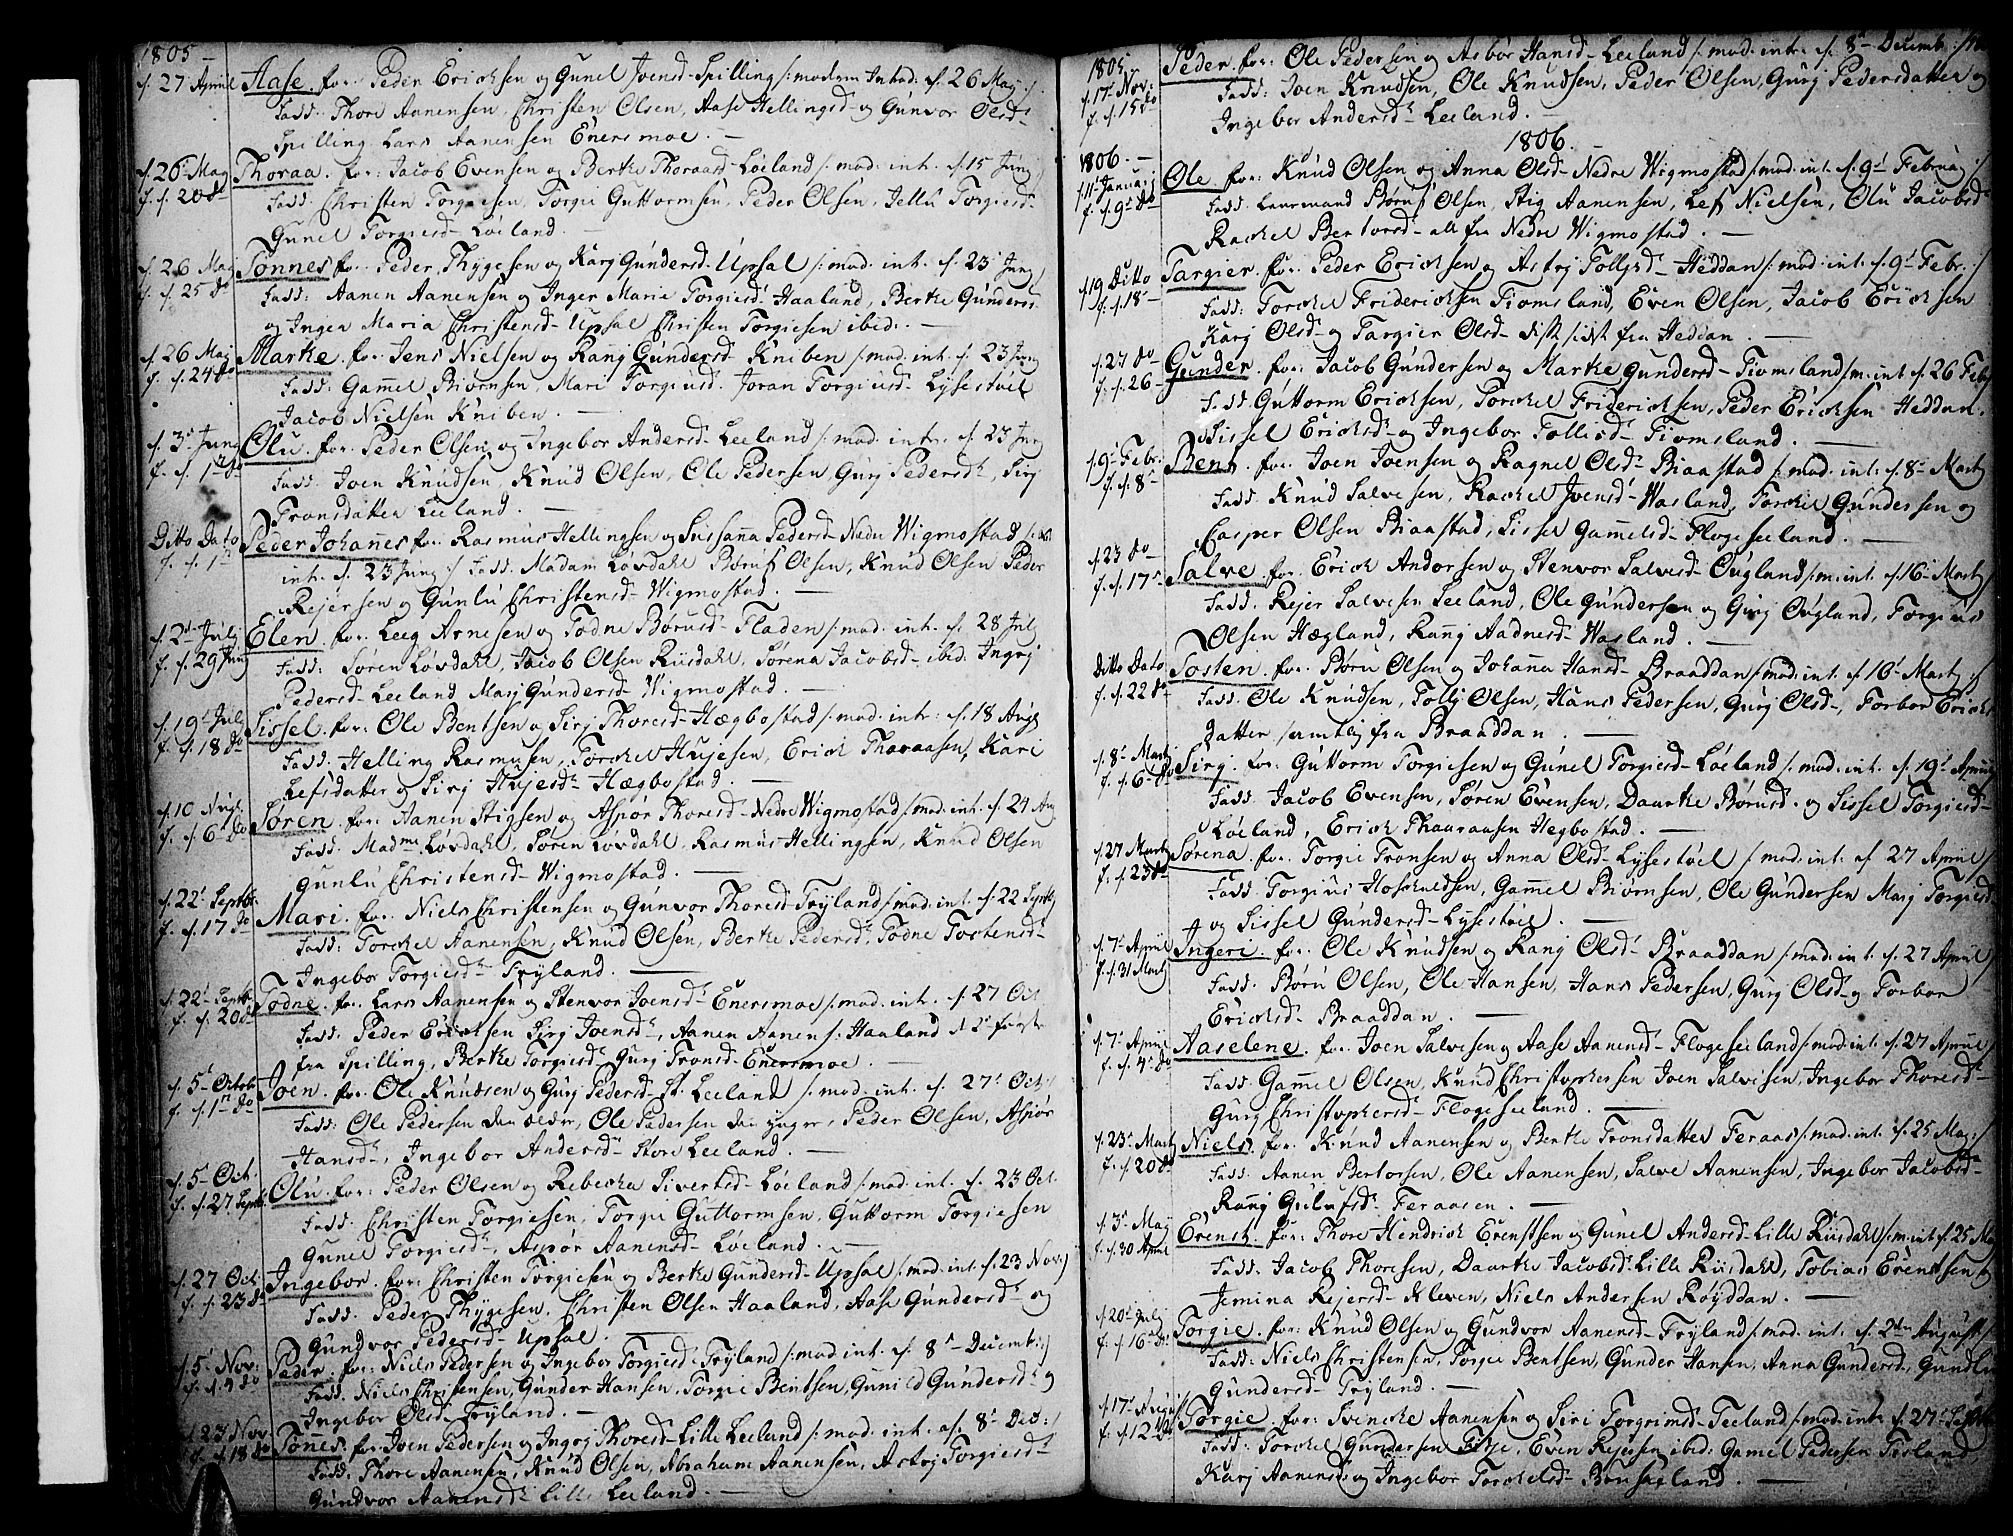 1805 -
d. 27 April Aase. for: Peder Ericksen og Gunel Joensd- Spilling /: modern Introd: d. 26 Maj :/
Fadd: Thore Aanensen, Christen Olsen, Aase Hellingsd- og Gunvor Olsd-
Spilling Lars Aanensen Enersmoe. -
d. 26 Maj Thoraa. for: Jacob Evensen og Berthe Thoraasd- Løeland /: mod: int. d. 15 Junj
f. d. 20 do Fadd: Christen Torgiesen, Torgie Guttormsen, Peder Olsen, Jellu Torgiesd-
Gunel Torgiesd- Løeland. -
d. 26 Maj Tønnes for. Peder Thygesen og Karj Gundersd- Upsal /: mod: int. d. 23 Junj
f. d. 25 do Fadd: Aanen Aanensen og Inger Marie Torgiesd- Haaland, Berthe Gundersd-
og Inger Maria Christensd- Upsal Christen Torgiesen ibid: -
d. 26 Maj Marthe. for. Jens Nielsen og Ranj Gundersd- Kniben /: mod: int. d. 23 Junj
f. d. 24 do Fadd: Gamel Biørnsen, Mari Torgiusd. Joran Torgiusd- Lysestøel
Jacob Nielsen Kniben. -
d. 3 Junj Olu. for. Peder Olsen og Ingebor Andersd- Leeland /: mod: intr. d. 23 Junj
f. d. 1 do Fadd: Joen Knudsen, Knud Olsen, Ole Pedersen Gurj Pedersd-, Sirj
Tronsdatter Leeland. -
Ditto Dato Peder Johanes for. Rasmus Hellingsen og Sussana Pedersd- Nedre Wigmostad
f. d. 1 intr. d. 23 Junj :/ Fadd: Madam Løvdahl Børuf Olsen, Knud Olsen Peder
Rejersen og Gunlu Christensd- Wigmostad. -
d. 2 Julj Elen. for. Leeg Arnesen og Todne Børusd- Fladen /: mod: int. d. 28 Julj
f. d. 29 Junj Fadd: Søren Løvdahl, Jacob Olsen Riisdahl, Sørena Jacobsd- ibid. Ingrj
Pedersd- Leeland Marj Gundersd- Wigmostad. -
d. 19 Julj Sissel. for. Ole Bentsen og Sirj Thoresd- Hægbostad /: mod: intr: d. 18 Augs
f. d. 18 do Fadd: Helling Rasmusen, Torckel Hujesen, Erick Thoraasen, Kari
Lefsdatter og Sirj Hujesd- Hægbostad. -
d. 10 Augs Søren. for: Aanen Stigsen og Aspør Thoresd- Nedre Wigmostad /: mod: int. d. 24 Aug
f. d. 6 do Fadd: Madme Løvdahl, Søren Løvdahl, Rasmus Hellingsen, Knud Olsen
Gunlu Christensd- Wigmostad. -
d. 22 Septbr Mari. for. Niels Christensen og Gunvor Thoresd- Tryland /: mod: int. d. 22 Septbr
f. d. 17 do Fadd: Torckel Aanensen, Knud Olsen, Berthe Pedersd-, Todne Tostensd-
Ingebor Torgiesd- Tryland. -
d. 22 Septbr Todne. for. Lars Aanensen og Stenvor Joensd- Enersmoe /: mod: int. d. 27 Oct
f. d. 20 do Fadd: Peder Ericksen Sirj Joensd-, Aanen Aanens: Haaland
fra Spilling, Berthe Torgiesd- Gurj Tronsd- Enersmoe. -
d. 5 Octob Joen. for. Ole Knudsen og Gurj Pedersd- St. Leeland /: mod: int. d. 27 Oct:
f. d. 1 do Fadd: Ole Pedersen den eldre, Ole Pedersen den yngre, Peder Olsen, Aspør
Hansd-, Ingebor Andersd- Store Leeland. -
d. 5 Oct. Olu. for: Peder Olsen og Rebecka Sivertsd- Løeland /: mod: int. d. 23 Oct.
f. d. 27 Septb. Fadd: Christen Torgiesen, Torgie Guttormsen, Guttorm Torgiesen
Gunel Torgiesd-, Aspør Aanensd- Løeland. -
d. 27 Oct. Ingebor. for: Christen Torgiesen og Berthe Gundersd- Upsal /: mod: int. d. 23 Nov:
f. d. 23 do Fadd: Peder Thygesen, Christen Olsen Haaland, Aase Gundersd- og
Gundvor Pedersd- Upsal. -
d. 5 Nov: Peder. for: Niels Pedersen og Ingebor Torgiesd- Tryland /: mod: int. d. 8 Decemb: :/
f. d. 4 do Fadd: Niels Christensen, Gunder Hansen, Torgie Bentsen, Gunild Gundersd- og
Ingebor Olsd- Tryland. -
d. 23 Nov Tønnes. for. Joen Pedersen og Ingrj Thoresd- Lille Leeland /: mod: int. d. 8 Dec: :/
f. d. 18 do Fadd: Thore Aanensen, Knud Olsen, Abraham Aanensen, Astrj Torgiesd-
Gundvor Aanensd- Lille Leeland. -
1805 Peder for: Ole Pedersen og Asbør Hansd- Leeland /: mod: intr. d. 8 Decemb:
d. 17 Nov: Fadd: Joen Knudsen, Ole Knudsen, Peder Olsen, Gurj Pedersdatter og
f. d. 15 do Ingebor Andersd- Leeland. -
1806. -
1806. -
d. 11 Januarj Ole for. Knud Olsen og Anna Olsd- Nedre Wigmostad /: mod: int. d. 9 Februarj
f. d. 9 do Fadd: Lensmand Børuf Olsen, Stig Aanensen, Lef Nielsen, Olu Jacobsd-
Rachel Bertorsd- all fra Nedre Wigmostad. -
d. 19 Ditto Targier. for. Peder Ericksen og Astrj Tollefsd- Heddan /: mod: int. d. 9 Febr: :/
f. d. 18 Fadd: Torckel Fridericksen Fiomsland, Even Olsen, Jacob Ericksen
Karj Olsd- og Targier Olsd- fra Heddan. -
d. 27 do Gunder. for. Jacob Gundersen og Marthe Gundersd- Fiomsland /: m: int d. 26 Febr
f. d. 26 Fadd: Guttorm Ericksen, Torckel Fridericksen, Peder Ericksen Heddan,
Sissel Ericksd- og Ingebor Tollisd- Fiomsland. -
d. 9 Febr: Bent. for. Joen Joensen og Ragnel Olsd- Biaastad /: mod: int. d. 8 Martj
f. d. 8 Fadd: Knud Salvesen, Rachel Jvensd- Wasland, Torckel Gundersen og
Casper Olsen Biaastad, Sissel Gamelsd- Flogeseeland. -
d. 23 do Salve. for. Erick Andorsen og Stenvor Salvesd- Øugland /: m: int. d. 16 Martj
f. d. 17 Fadd: Rejer Salvesen Leeland, Ole Gundersen og Gurj Øugland, Torgius
Olsen Hægland, Ranj Aadnesd- Wasland. -
Ditto Dato Tosten. for. Børu Olsen og Johana Hansd- Braaddan /: mod: int. d. 16 Martj :/
f. d. 22 do Fadd: Ole Knudsen, Tollj Olsen, Hans Pedersen, Gurj Olsd-, Torbor Ericks
datter samtlig fra Braaddan. -
d. 8 Martj Sirj. for. Guttorm Torgiesen og Gunel Torgiesd- Løeland /: mod: int. d. 19 April
f. d. 6 do Fadd: Jacob Evensen, Søren Evensen, Daarthe Børusd- og Sissel Torgiesd-
Løeland, Erick Thaaraasen Hegbostad. -
d. 27 Martj Sørena for. Torgie Tronsen og Anna Olsd- Lysestøel /: mod: int. d. 27 April :/
f. d. 23 do Fadd: Torgius Hoskuldsen, Gamel Biørnsen, Ole Gundersen Marj Torgiesd-
og Sissel Gundersd- Lysestøel. -
d. 7 April Ingeri. for. Ole Knudsen og Ranj Olsd- Braaddan /: mod: int. d. 27 April :/
f. d. 31 Martj Fadd: Børu Olsen, Ole Hansen, Hans Pedersen, Gurj Olsd- og Torbor
Ericksd- Braaddan. -
d. 7 April Aaselene. for. Joen Salvesen og Aase Aanensd- Flogeseeland /: mod: int. d. 27 April :/
f. d. 4 do Fadd: Gamel Olsen, Knud Christophersen Joen Salvesen, Ingebor Thoresd-
Gurj Christophersd- Flogeseeland. -
d. 23 Martj Niels. for. Knud Aanensen og Berthe Tronsdatter Feraas /: mod: int. d. 25 Maj :/
f. d. 20 do Fadd: Aanen Bertorsen, Ole Aanensen, Salve Aanensen, Ingebor Jacobsd-
Ranj Gulufsd- Feraasen. -
d. 3 Maj Erenst. for. Thore Hendrick Erenstsen og Gunel Andersd- Lille Riisdahl /: m: int d. 25 Maj
f. d. 30 April Fadd: Jacob Thoresen, Daarthe Jacobsd- Lille Riisdahl, Tobias Erenstsen og
Jemina Rejersd- Kleven, Niels Andersen Røyddan. -
d. 20 Julj Torgie. for: Knud Olsen og Gundvor Aanensd- Tryland /: mod: int. d. 2den August :/
f. d. 16 do Fadd: Niels Christensen, Torgie Bentsen, Gunder Hansen, Anna Gundersd-, Gundlu
Gundersd- Tryland. -
d. 17 August Torgie. for: Svencke Aanensen og Siri Torgrimsd- Teeland /: mod: intr. d. 27 Septbr
f. d. 12 do Fadd: Torckel Gundersen Fitje, Even Rejersen ibid: Gamel Pedersen Fioland,
Karj Aanensd- og Ingebor Torckelsd- Bonsasland. -